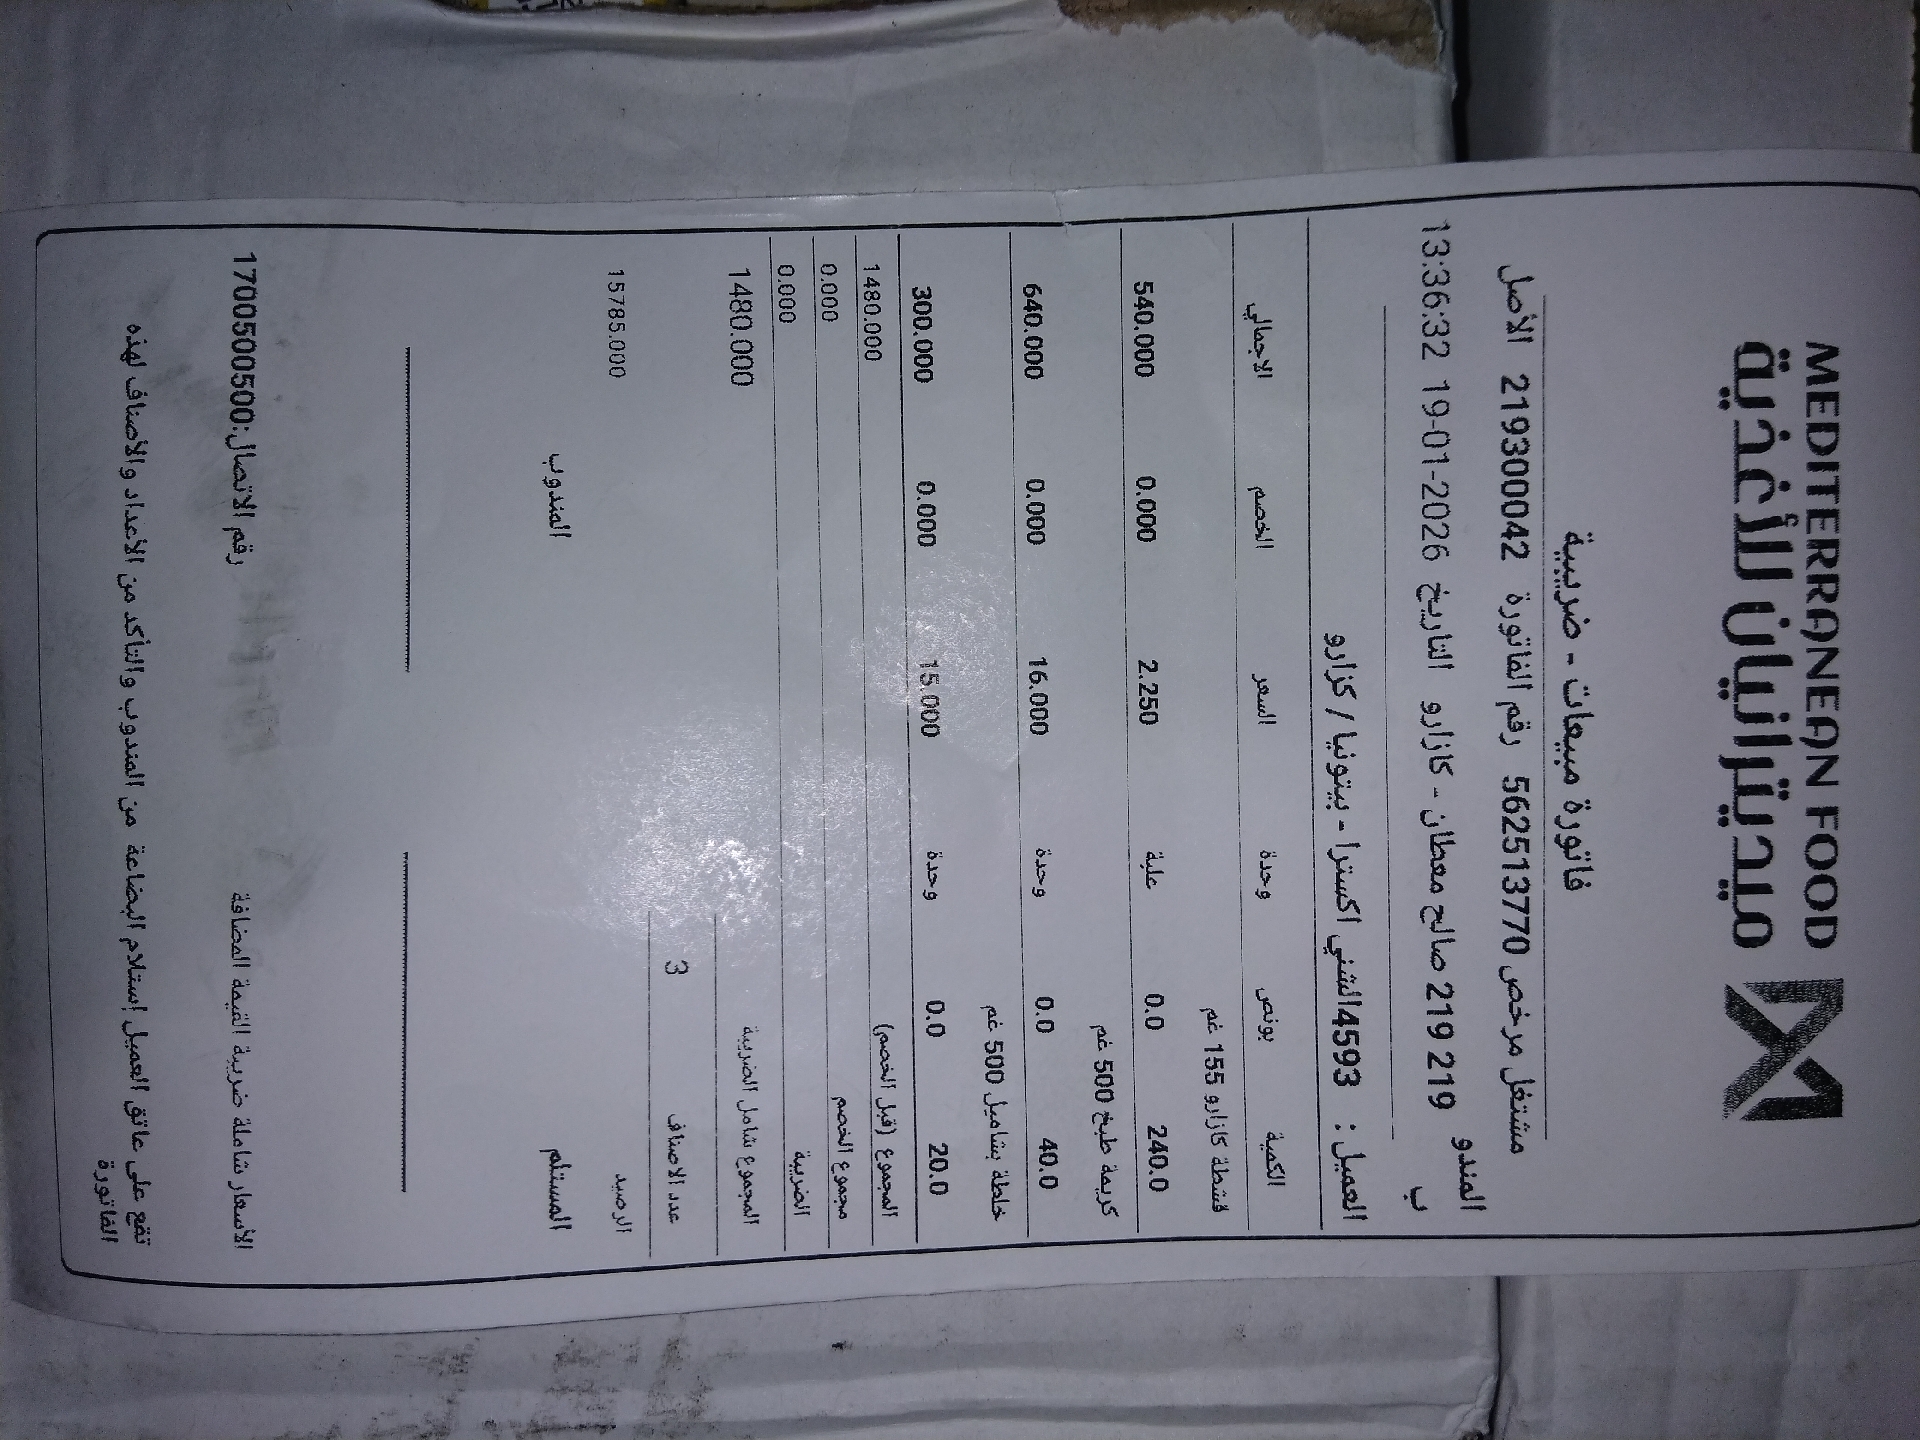 MEDITERRANEAN FOOD
ميديترانيان للأغذية
فاتورة مبيعات - ضريبية
مشتغل مرخص 562513770 رقم الفاتورة 219300042 الأصل
المندوب 219 219 صالح معطان - كازارو التاريخ 19-01-2026 13:36:32
العميل : 4593الشني اكسترا - بيتونيا / كزارو
الكمية بونص وحدة السعر الخصم الاجمالي
قشطة كازارو 155 غم
240.0 0.0 علبة 2.250 0.000 540.000
كريمة طبخ 500 غم
40.0 0.0 وحدة 16.000 0.000 640.000
خلطة بشاميل 500 غم
20.0 0.0 وحدة 15.000 0.000 300.000
المجموع (قبل الخصم) 1480.000
مجموع الخصم 0.000
الضريبة 0.000
المجموع شامل الضريبة 1480.000
عدد الاصناف 3
الرصيد 15785.000
المستلم المندوب
الأسعار شاملة ضريبة القيمة المضافة رقم الاتصال:1700500500
تقع على عاتق العميل إستلام البضاعة من المندوب والتأكد من الأعداد والأصناف لهذه
الفاتورة